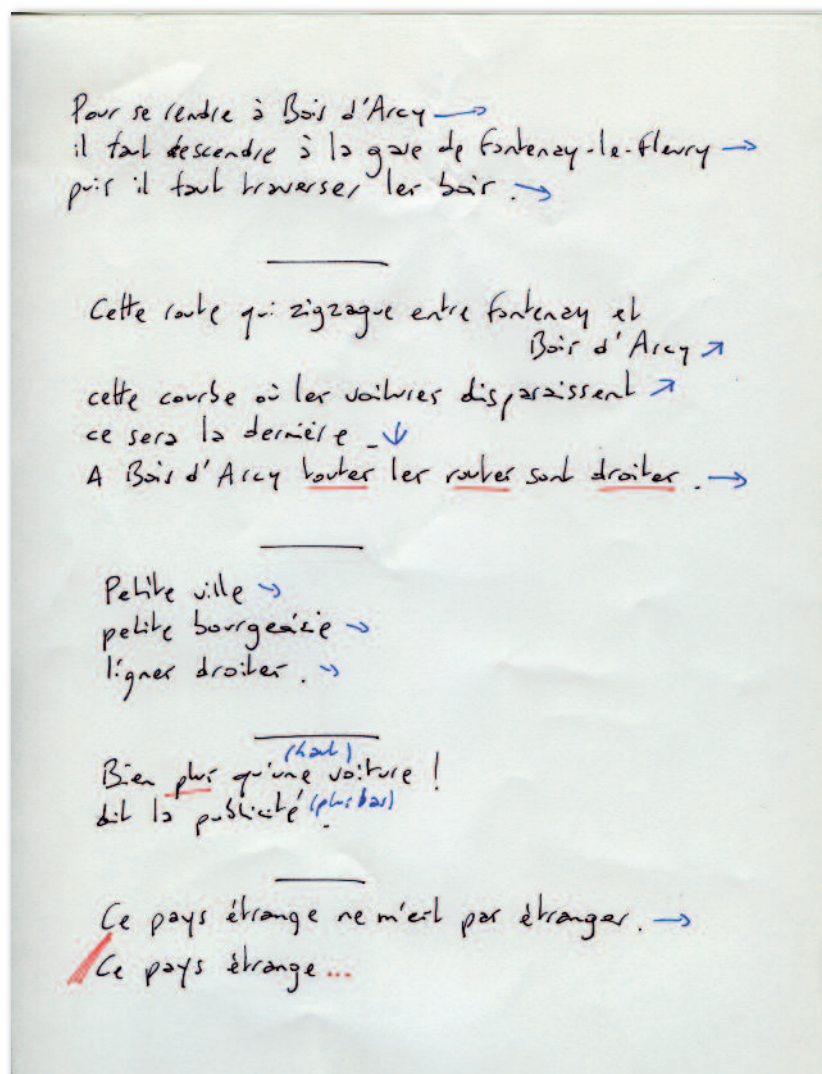 Pour se rendre à Bois d'Arcy →
il faut descendre à la gare de Fontenay-le-Fleury →
puis il faut traverser les bois. →
Cette route qui zigzague entre Fontenay et
Bois d'Arcy ↗
cette courbe où les voitures disparaissent ↗
ce sera la dernière. ↓
A Bois d'Arcy toutes les routes sont droites. →
Petite ville →
petite bourgeoisie →
lignes droites. →
(haut)
Bien plus qu'une voiture !
dit la publicité. (plus bas)
Ce pays étrange ne m'est pas étranger. →
Ce pays étrange...